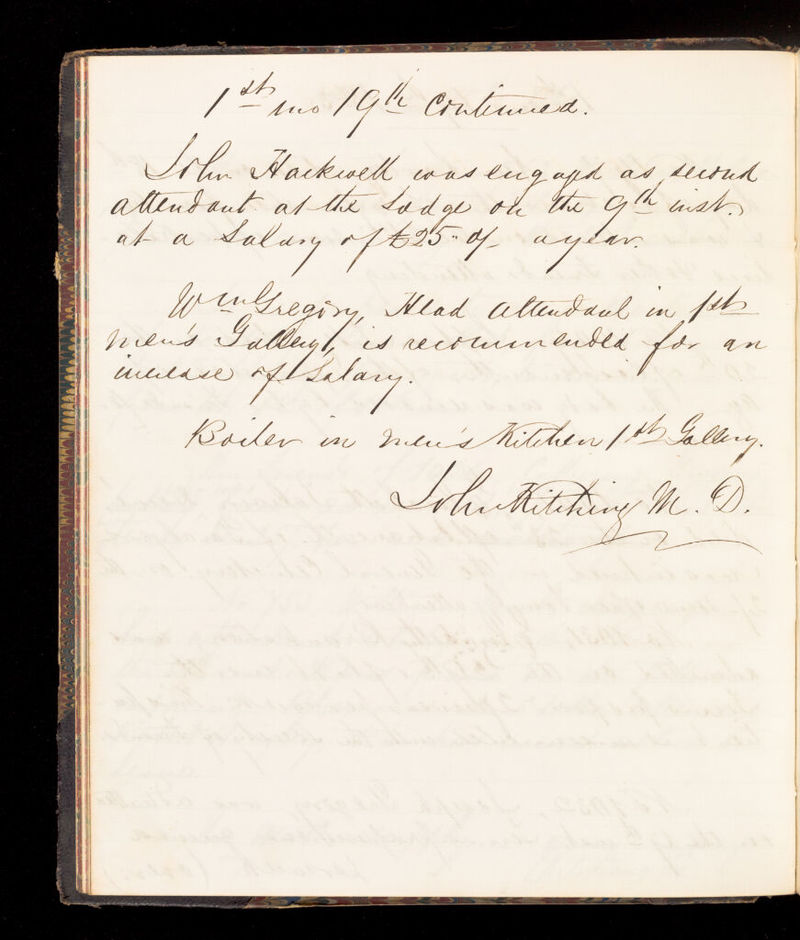 1st mo 19th continued.
John Hackwell was engaged as second
attendant at the Lodge on the 9th inst.
at a Salary of £25 " o/- a year.
Wm Gregory, Head Attendant in 1st
men's Gallery, is recommended for an
increase of Salary.
Boiler in men's Kitchen 1st Gallery.
John Kitching M. D.